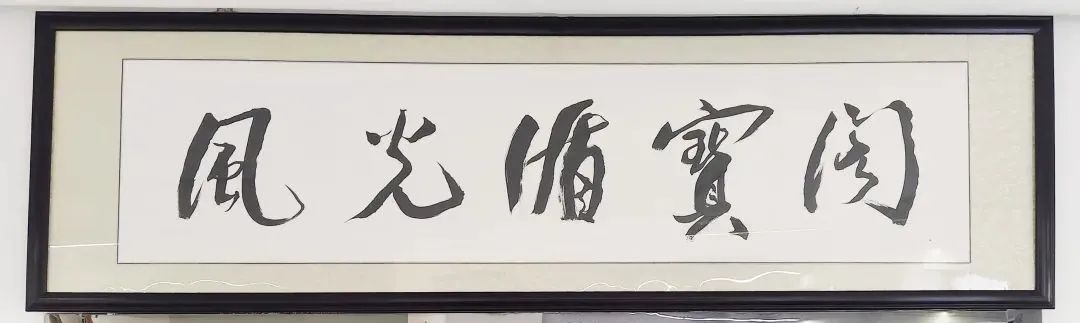 風光循寶閣